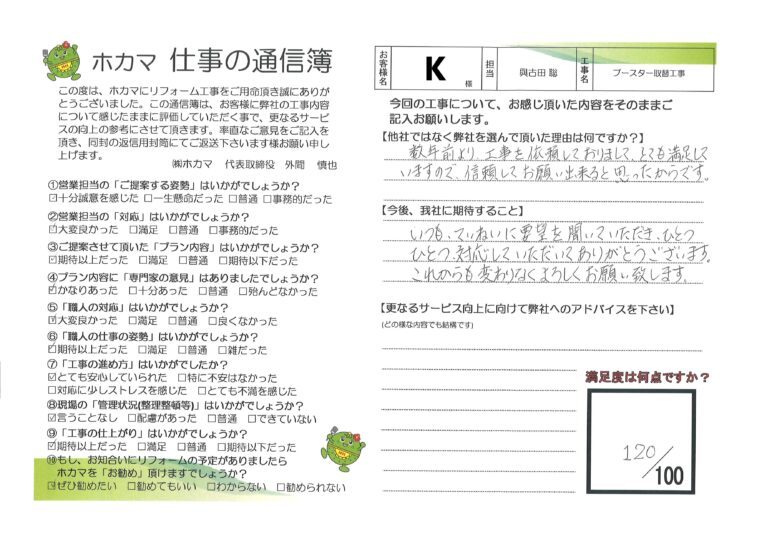 ホカマ 仕事の通信簿
この度は、ホカマにリフォーム工事をご用命頂き誠にありが
とうございました。この通信簿は、お客様に弊社の工事内容
について感じたままに評価していただく事で、更なるサービ
スの向上の参考にさせて頂きます。率直なご意見をご記入を
頂き、同封の返信用封筒にてご返送下さいます様お願い申し
上げます。
㈱ホカマ 代表取締役 外間 慎也
①営業担当の「ご提案する姿勢」はいかがでしょうか?
☑十分誠意を感じた □一生懸命だった □普通 □事務的だった
②営業担当の「対応」はいかがでしょうか?
☑大変良かった □満足 □普通 □事務的だった
③ご提案させて頂いた「プラン内容」はいかがでしょうか?
☑期待以上だった □満足 □普通 □期待以下だった
④プラン内容に「専門家の意見」はありましたでしょうか?
☑かなりあった □十分あった □普通 □殆んどなかった
⑤「職人の対応」はいかがでしょうか?
☑大変良かった □満足 □普通 □良くなかった
⑥「職人の仕事の姿勢」はいかがでしょうか?
☑期待以上だった □満足 □普通 □雑だった
⑦「工事の進め方」はいかがでしたか?
☑とても安心していられた □特に不安はなかった
□対応に少しストレスを感じた □とても不満を感じた
⑧現場の「管理状況(整理整頓等)」はいかがでしょうか?
☑言うことなし □配慮があった □普通 □できていない
⑨「工事の仕上がり」はいかがでしょうか?
☑期待以上だった □満足 □普通 □期待以下だった
⑩もし、お知合いにリフォームの予定がありましたら
ホカマを「お勧め」頂けますでしょうか?
☑ぜひ勧めたい □勧めてもいい □わからない □勧められない
お客様名 K 様 担当 與古田 聡 工事名 ブースター取替工事
今回の工事について、お感じ頂いた内容をそのままご
記入お願いします。
【他社ではなく弊社を選んで頂いた理由は何ですか?】
数年前より、工事を依頼しておりまして、とても満足して
いますので、信頼してお願い出来ると思ったからです。
【今後、我社に期待すること】
いつも、ていねいに要望を聞いていただき、ひとつ
ひとつ対応していただいてありがとうございます。
これからも変わりなくよろしくお願い致します。
【更なるサービス向上に向けて弊社へのアドバイスを下さい】
(どの様な内容でも結構です)
満足度は何点ですか?
120/100